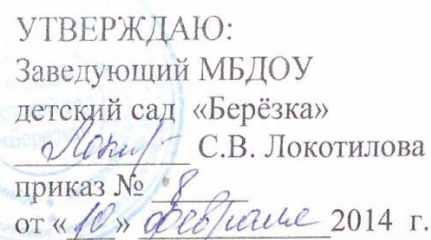 УТВЕРЖДАЮ:
Заведующий МБДОУ
детский сад «Берёзка»
С.В. Локотилова
приказ № 8
от «10» февраля 2014 г.